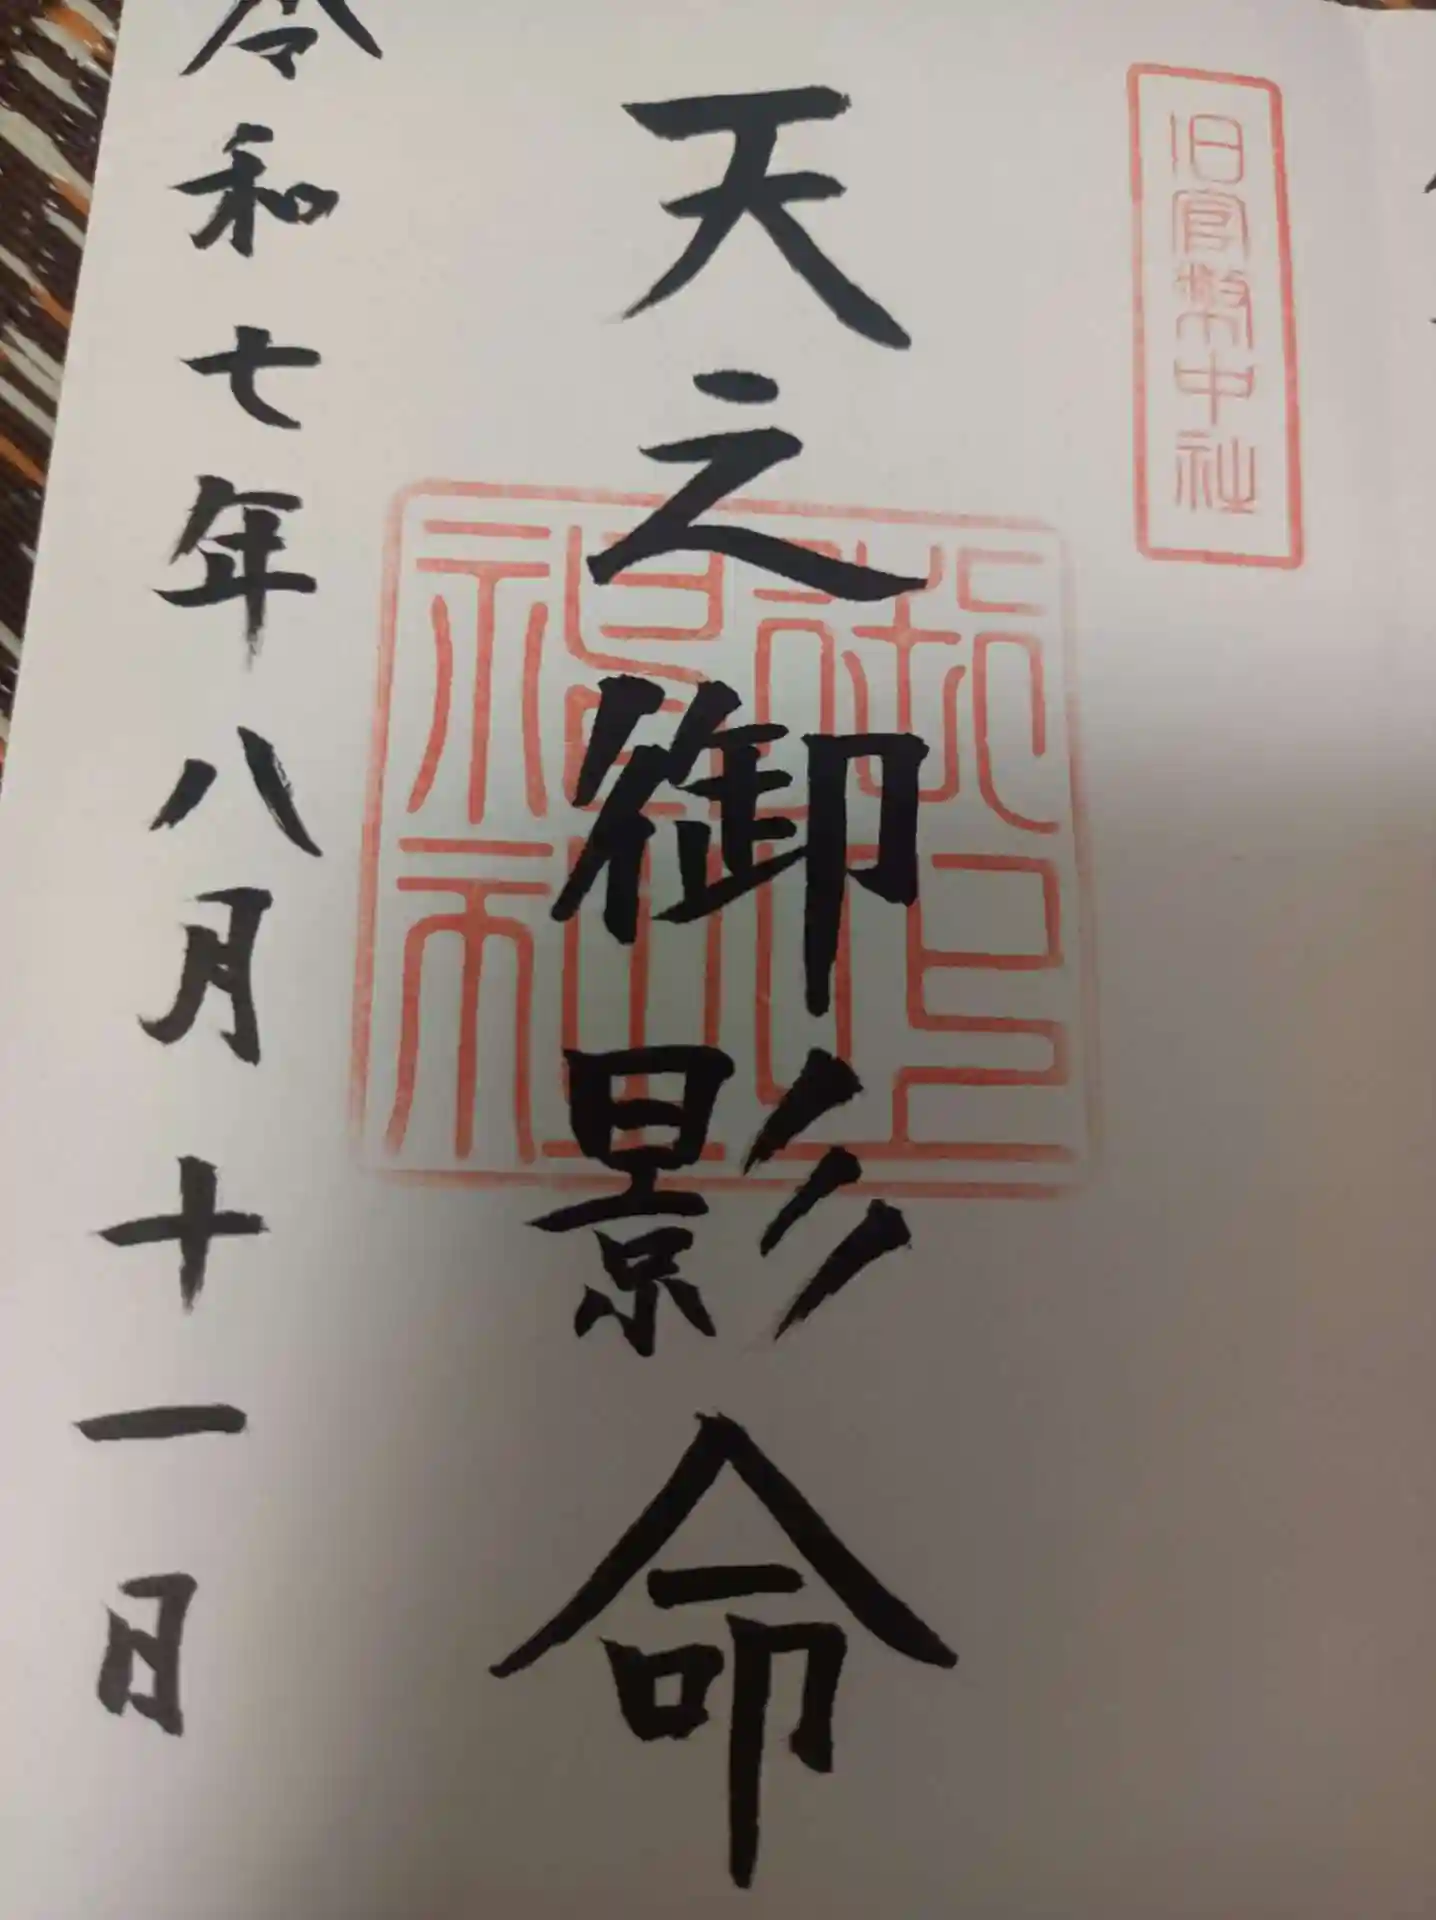 旧官幣中社
天之御影命
御上神社
令和七年八月十一日